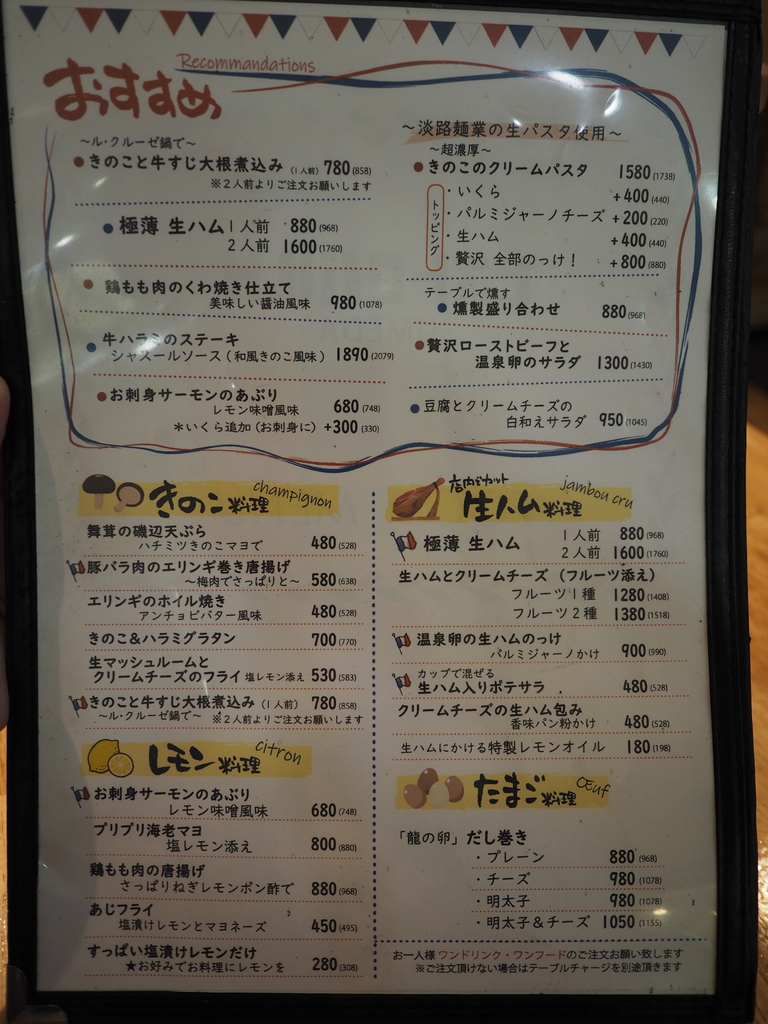 Recommandations
おすすめ
～ル・クルーゼ鍋で～
きのこと牛すじ大根煮込み (1人前) 780(858)
※2人前よりご注文お願いします
極薄 生ハム 1人前 880(968)
2人前 1600(1760)
鶏もも肉のくわ焼き仕立て
美味しい醤油風味 980(1078)
牛ハラミのステーキ
シャスールソース(和風きのこ風味) 1890(2079)
お刺身サーモンのあぶり
レモン味噌風味 680(748)
＊いくら追加(お刺身に) +300(330)
～淡路麺業の生パスタ使用～
～超濃厚～
きのこのクリームパスタ 1580(1738)
トッピング
・いくら +400(440)
・パルミジャーノチーズ +200(220)
・生ハム +400(440)
・贅沢 全部のっけ！ +800(880)
テーブルで燻す
燻製盛り合わせ 880(968)
贅沢ローストビーフと
温泉卵のサラダ 1300(1430)
豆腐とクリームチーズの
白和えサラダ 950(1045)
きのこ料理 champignon
舞茸の磯辺天ぷら
ハチミツきのこマヨで 480(528)
豚バラ肉のエリンギ巻き唐揚げ
～梅肉でさっぱりと～ 580(638)
エリンギのホイル焼き
アンチョビバター風味 480(528)
きのこ＆ハラミグラタン 700(770)
生マッシュルームと
クリームチーズのフライ 塩レモン添え 530(583)
きのこと牛すじ大根煮込み (1人前) 780(858)
～ル・クルーゼ鍋で～ ※2人前よりご注文お願いします
レモン料理 citron
お刺身サーモンのあぶり
レモン味噌風味 680(748)
プリプリ海老マヨ
塩レモン添え 800(880)
鶏もも肉の唐揚げ
さっぱりねぎレモンポン酢で 880(968)
あじフライ
塩漬けレモンとマヨネーズ 450(495)
すっぱい塩漬けレモンだけ
★お好みでお料理にレモンを 280(308)
店内でカット
生ハム料理 jambou cru
極薄 生ハム 1人前 880(968)
2人前 1600(1760)
生ハムとクリームチーズ(フルーツ添え)
フルーツ1種 1280(1408)
フルーツ2種 1380(1518)
温泉卵の生ハムのっけ
パルミジャーノかけ 900(990)
カップで混ぜる
生ハム入りポテサラ 480(528)
クリームチーズの生ハム包み
香味パン粉かけ 480(528)
生ハムにかける特製レモンオイル 180(198)
たまご料理 Œuf
「龍の卵」だし巻き
・プレーン 880(968)
・チーズ 980(1078)
・明太子 980(1078)
・明太子＆チーズ 1050(1155)
お一人様 ワンドリンク・ワンフードのご注文お願い致します
※ご注文頂けない場合はテーブルチャージを別途頂きます